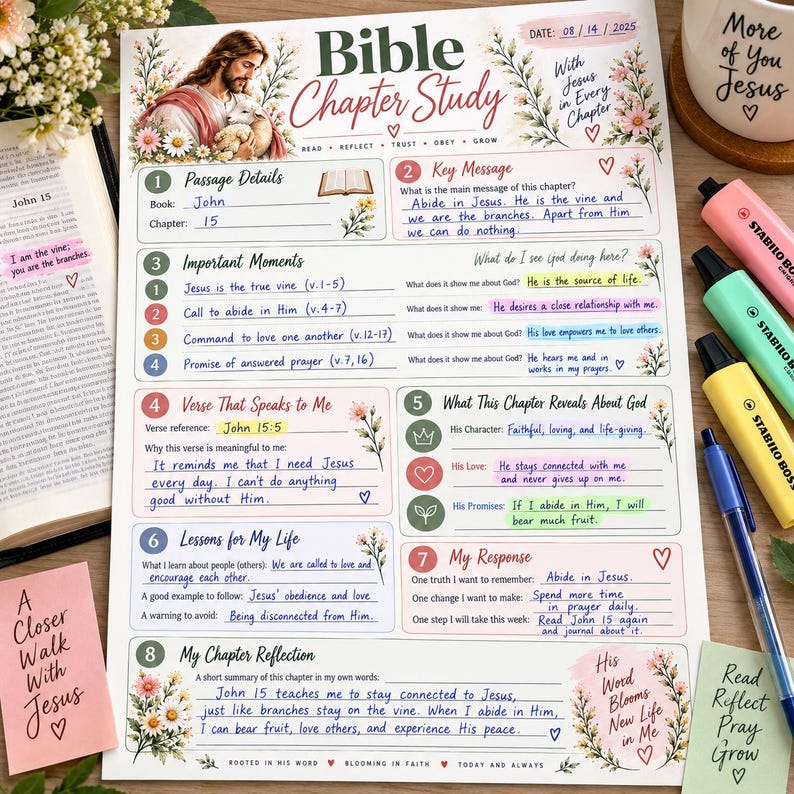 Bible
Chapter Study
READ • REFLECT • TRUST • OBEY • GROW
DATE: 08 / 14 / 2025
With
Jesus
in Every
Chapter
1 Passage Details
Book: John
Chapter: 15
2 Key Message
What is the main message of this chapter?
Abide in Jesus. He is the vine and
we are the branches. Apart from Him
we can do nothing.
3 Important Moments
What do I see God doing here?
1 Jesus is the true vine (v.1-5)
What does it show me about God? He is the source of life.
2 Call to abide in Him (v.4-7)
What does it show me: He desires a close relationship with me.
3 Command to love one another (v.12-17)
What does it show me about God? His love empowers me to love others.
4 Promise of answered prayer (v.7,16)
What does it show me about God? He hears me and in
works in my prayers.
4 Verse That Speaks to Me
Verse reference: John 15:5
Why this verse is meaningful to me:
It reminds me that I need Jesus
every day. I can't do anything
good without Him.
5 What This Chapter Reveals About God
His Character: Faithful, loving, and life-giving.
His Love: He stays connected with me
and never gives up on me.
His Promises: If I abide in Him, I will
bear much fruit.
6 Lessons for My Life
What I learn about people (others): We are called to love and
encourage each other.
A good example to follow: Jesus' obedience and love
A warning to avoid: Being disconnected from Him.
7 My Response
One truth I want to remember: Abide in Jesus.
One change I want to make: Spend more time
in prayer daily.
One step I will take this week: Read John 15 again
and journal about it.
8 My Chapter Reflection
A short summary of this chapter in my own words:
John 15 teaches me to stay connected to Jesus,
just like branches stay on the vine. When I abide in Him,
I can bear fruit, love others, and experience His peace.
His
Word
Blooms
New Life
in Me
ROOTED IN HIS WORD BLOOMING IN FAITH TODAY AND ALWAYS
John 15
I am the vine;
you are the branches.
A
Closer
Walk
With
Jesus
More
of You
Jesus
STABILO BOSS
STABILO BOSS
STABILO BOSS
Read
Reflect
Pray
Grow